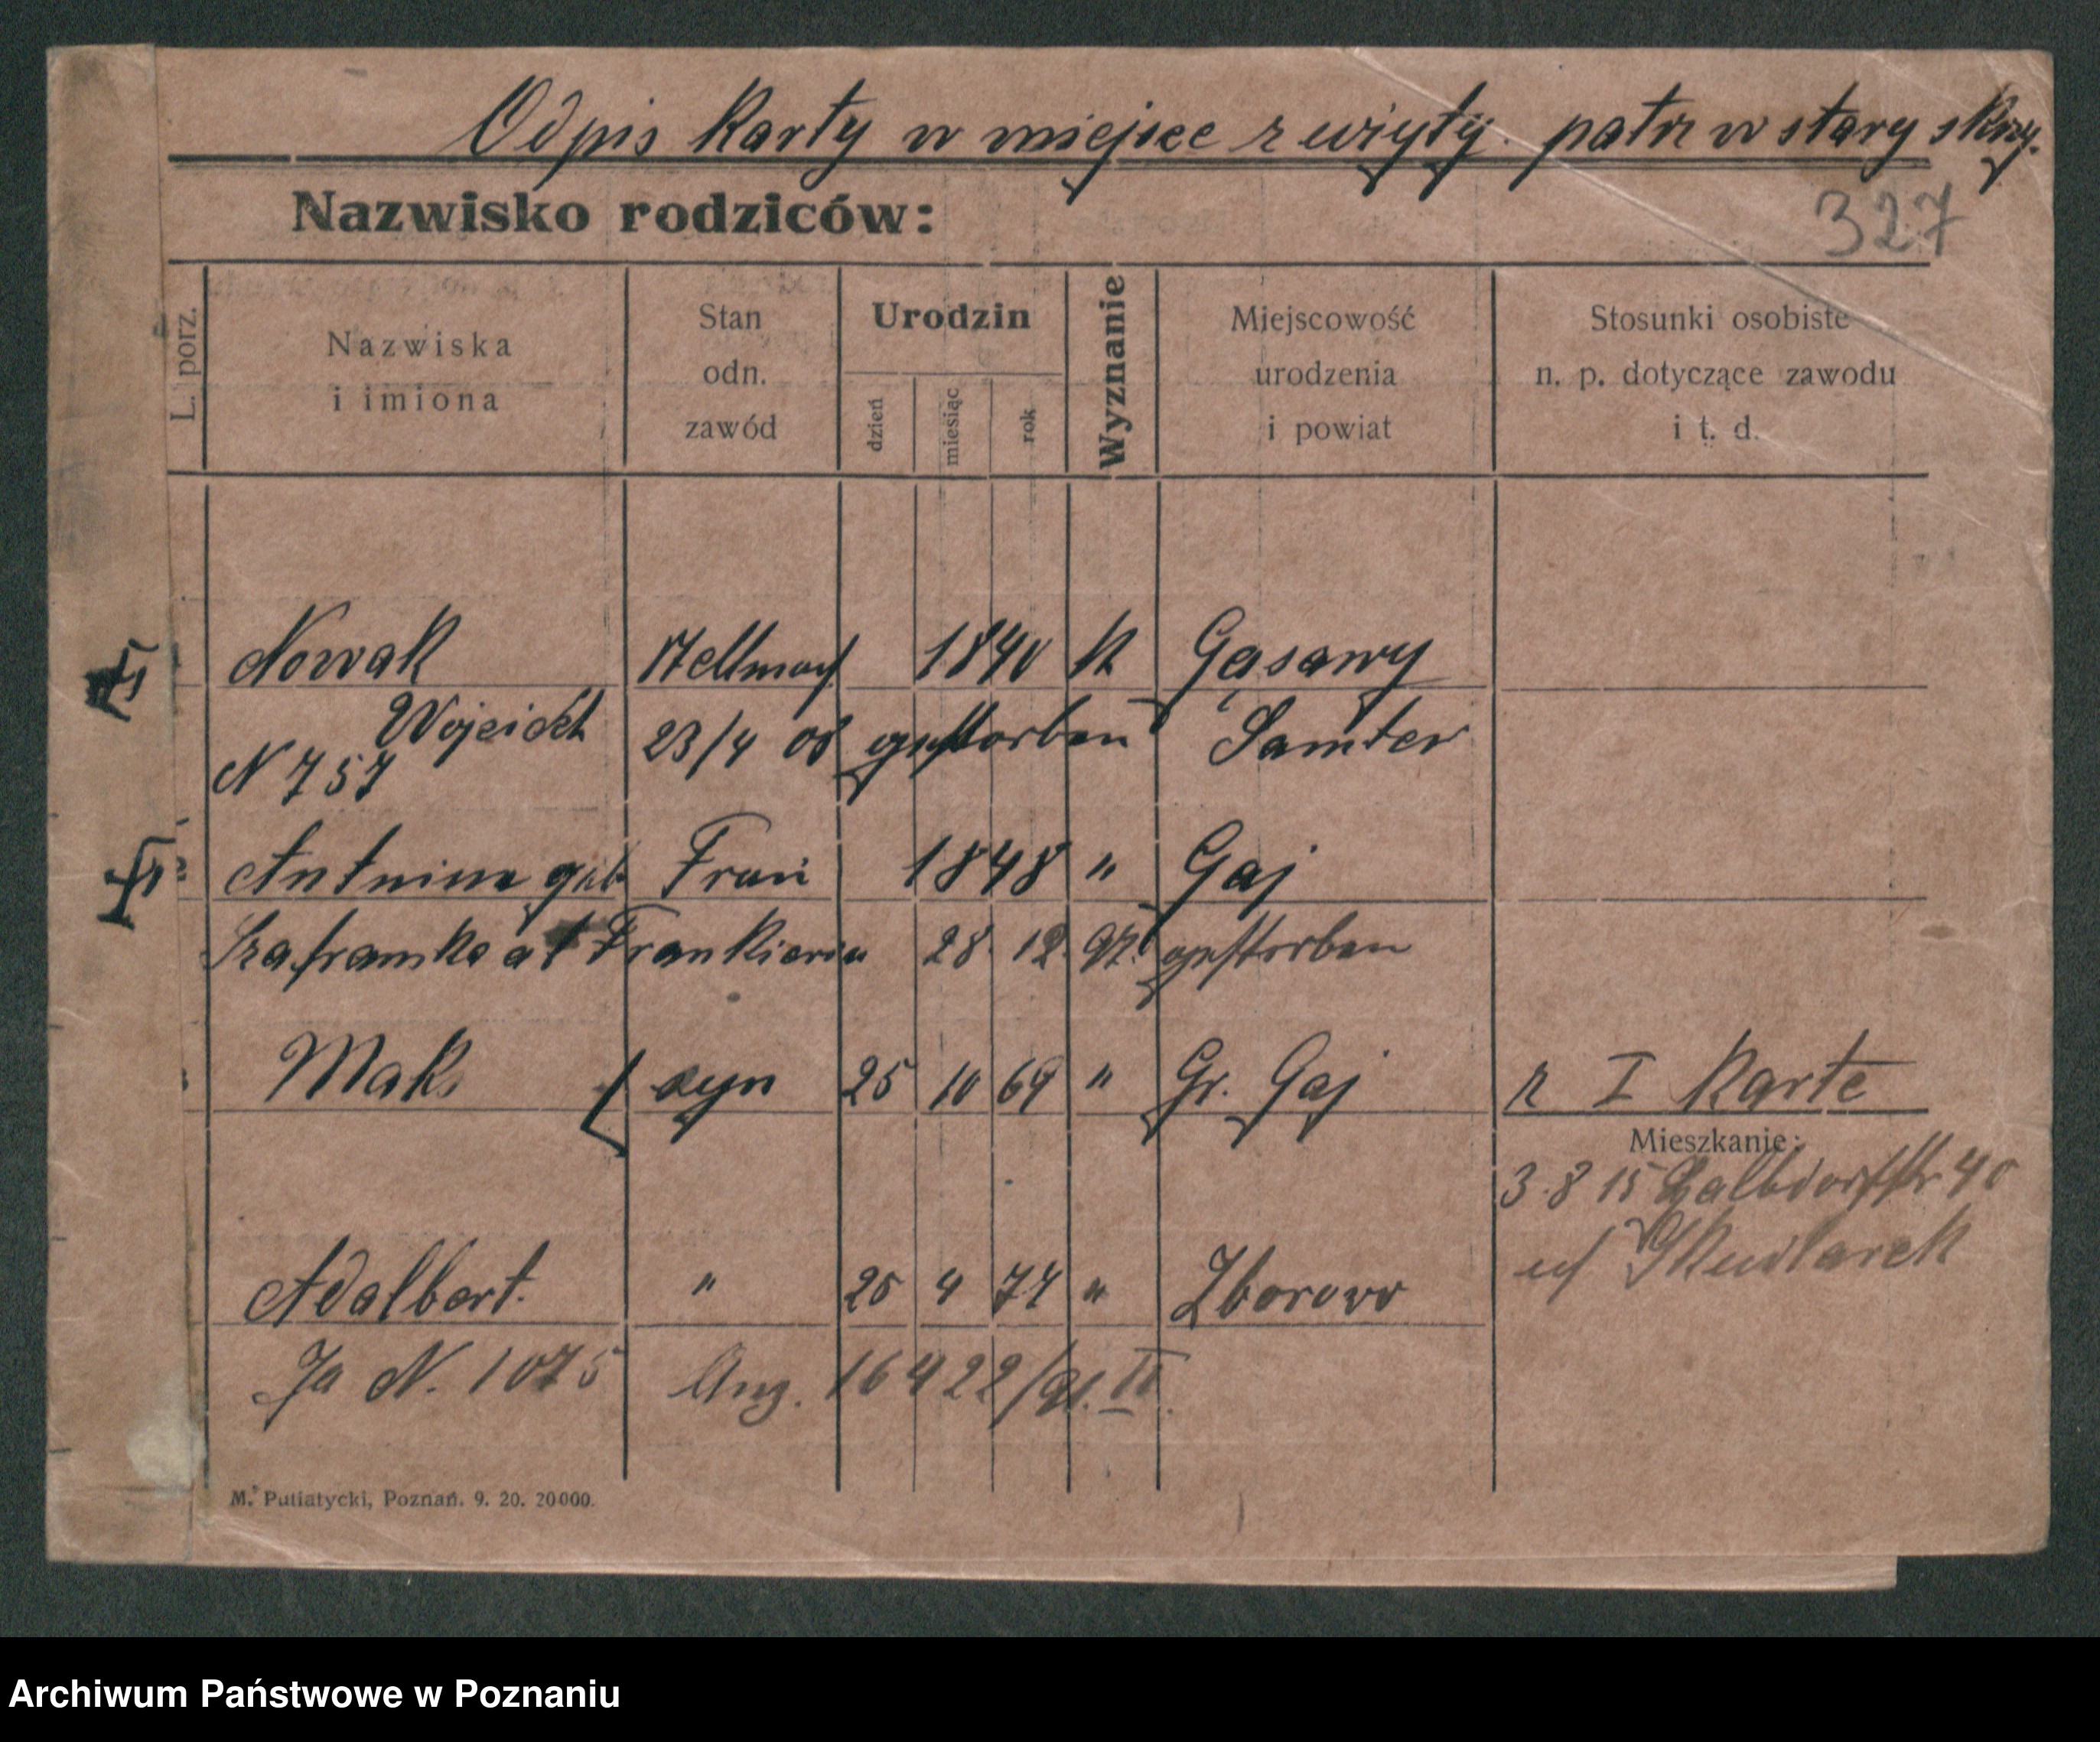 Odpis karty w miejsce zużytej patrz w stary skrz.
327
Nazwisko rodziców:
L. porz.
Nazwiska i imiona
Stan odn. zawód
Urodzin
dzień
miesiąc
rok
Wyznanie
Miejscowość urodzenia i powiat
Stosunki osobiste n. p. dotyczące zawodu i t. d.
Nowak Stellmach 1840 k Gasawy
Wojciech 23/4 08 gestorben Samter
N 757
Antonina geb Frau 1848 " Gaj
Szafranska a l Frankiewicz 28. 12. 97. gestorben
Maks syn 25 10 69 " Gr. Gaj z I Karte
Mieszkanie:
3.8 15 40
b/
Adalbert. " 25 4 74 " Zborowo
Ja N. 1075 Ang. 16 4 22/ II.
M. Putiatycki, Poznań. 9. 20. 20000.
Archiwum Państwowe w Poznaniu